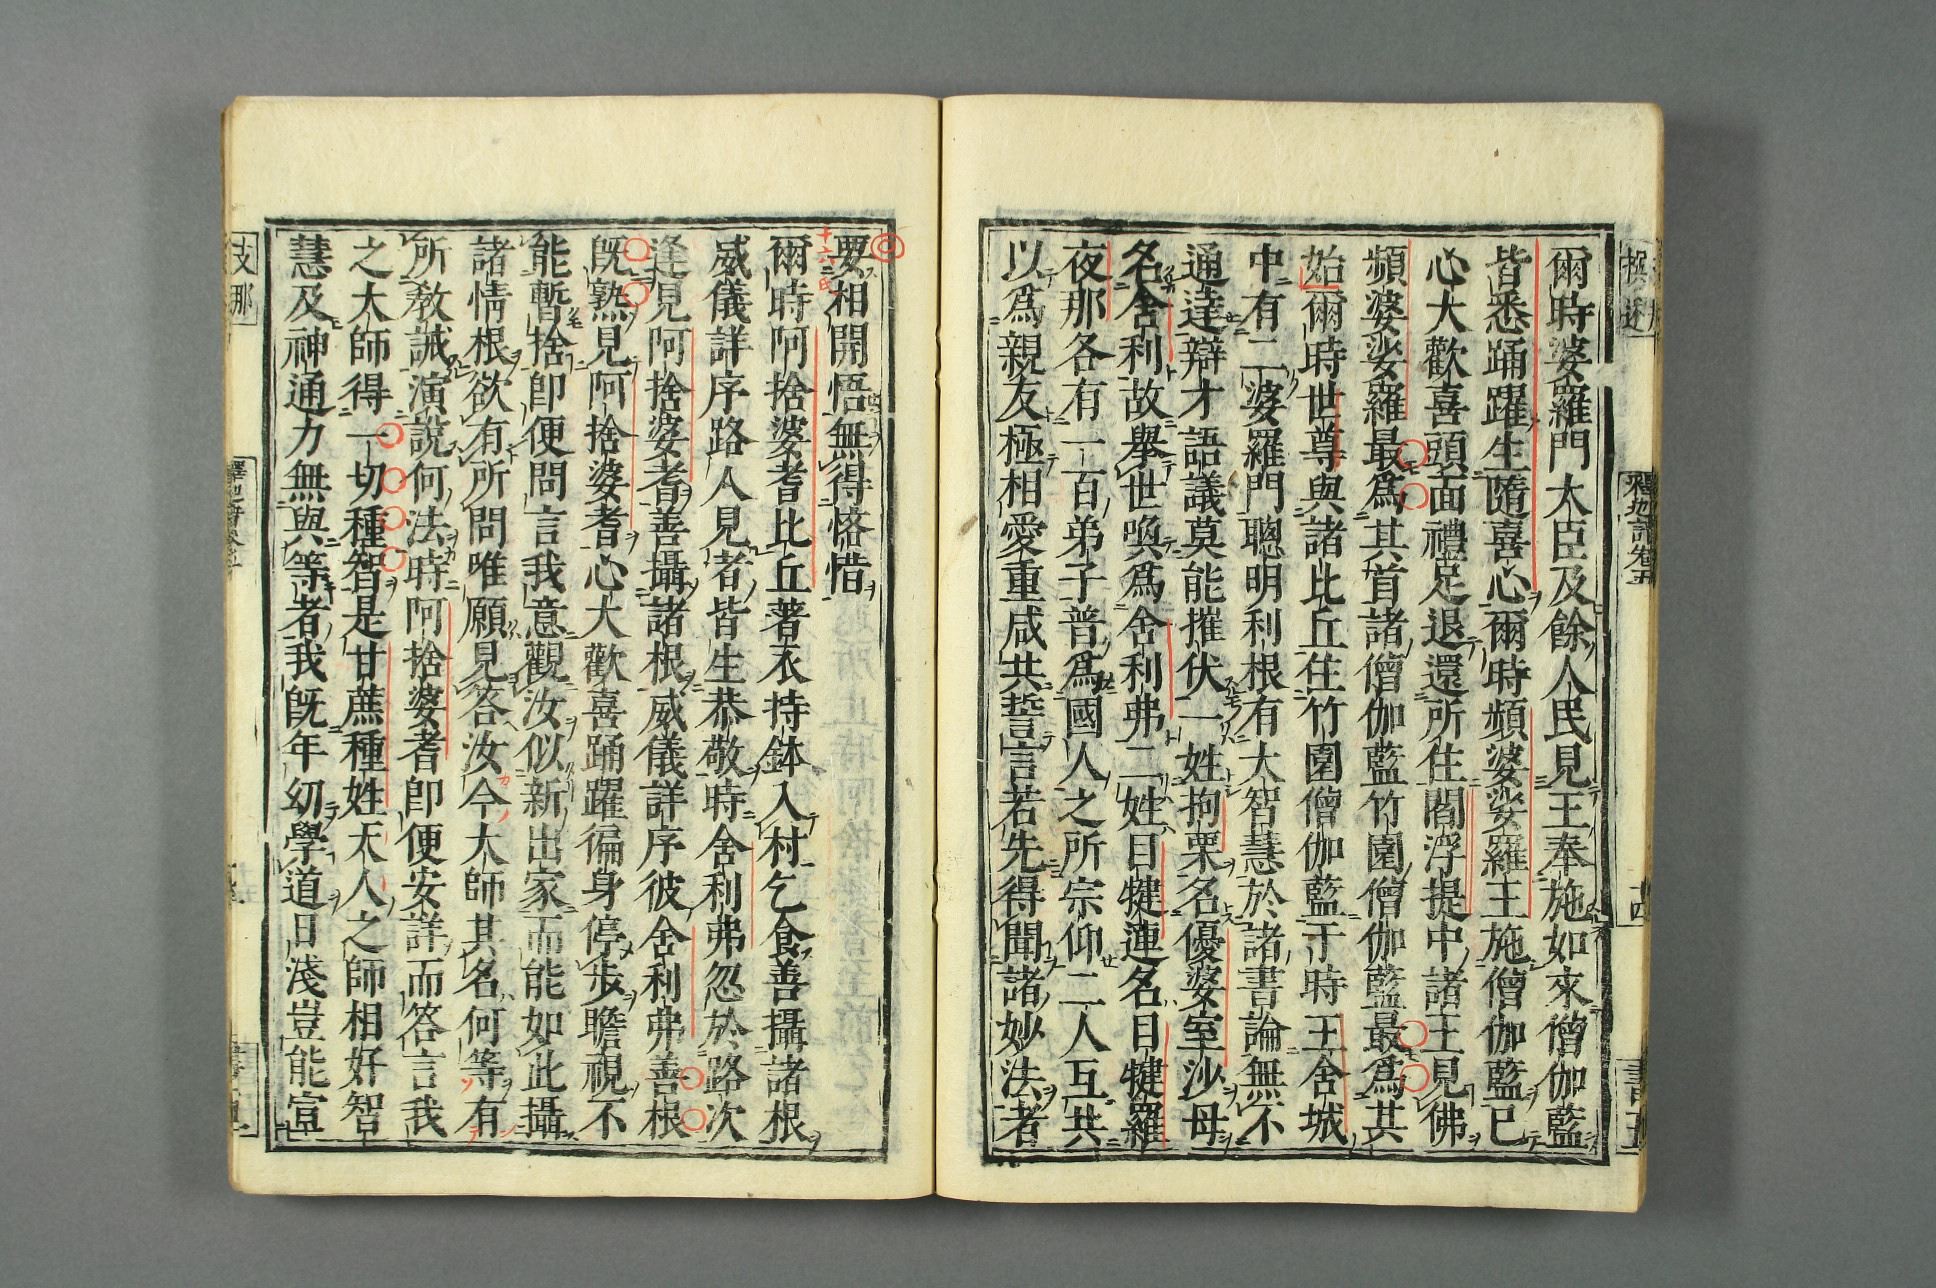 爾時婆羅門大臣及餘人民見王奉施如來僧伽藍
皆悉踊躍生隨喜心爾時頻婆娑羅王施僧伽藍已
心大歡喜頭面禮足退還所住閻浮提中諸王見佛
頻婆娑羅最爲其首諸僧伽藍竹園僧伽藍最爲其
始爾時世尊與諸比丘住竹園僧伽藍于時王舍城
中有二婆羅門聰明利根有大智慧於諸書論無不
通達辯才語議莫能摧伏一姓拘栗名優婆室沙母
名舍利故舉世喚爲舍利弗二姓目犍連名目犍羅
夜那各有一百弟子普爲國人之所宗仰二人互共
以爲親友極相愛重咸共誓言若先得聞諸妙法者
要相開悟無得恡惜
爾時阿捨婆耆比丘著衣持鉢入村乞食善攝諸根
威儀詳序路人見者皆生恭敬時舍利弗忽於路次
逢見阿捨婆耆善攝諸根威儀詳序彼舍利弗善根
旣熟見阿捨婆耆心大歡喜踊躍徧身停步瞻視不
能暫捨卽便問言我意觀汝似新出家而能如此攝
諸情根欲有所問唯願見答汝今大師其名何等有
所教誡演說何法時阿捨婆耆卽便安詳而答言我
之大師得一切種智是甘蔗種姓天人之師相好智
慧及神通力無與等者我旣年幼學道日淺豈能宣